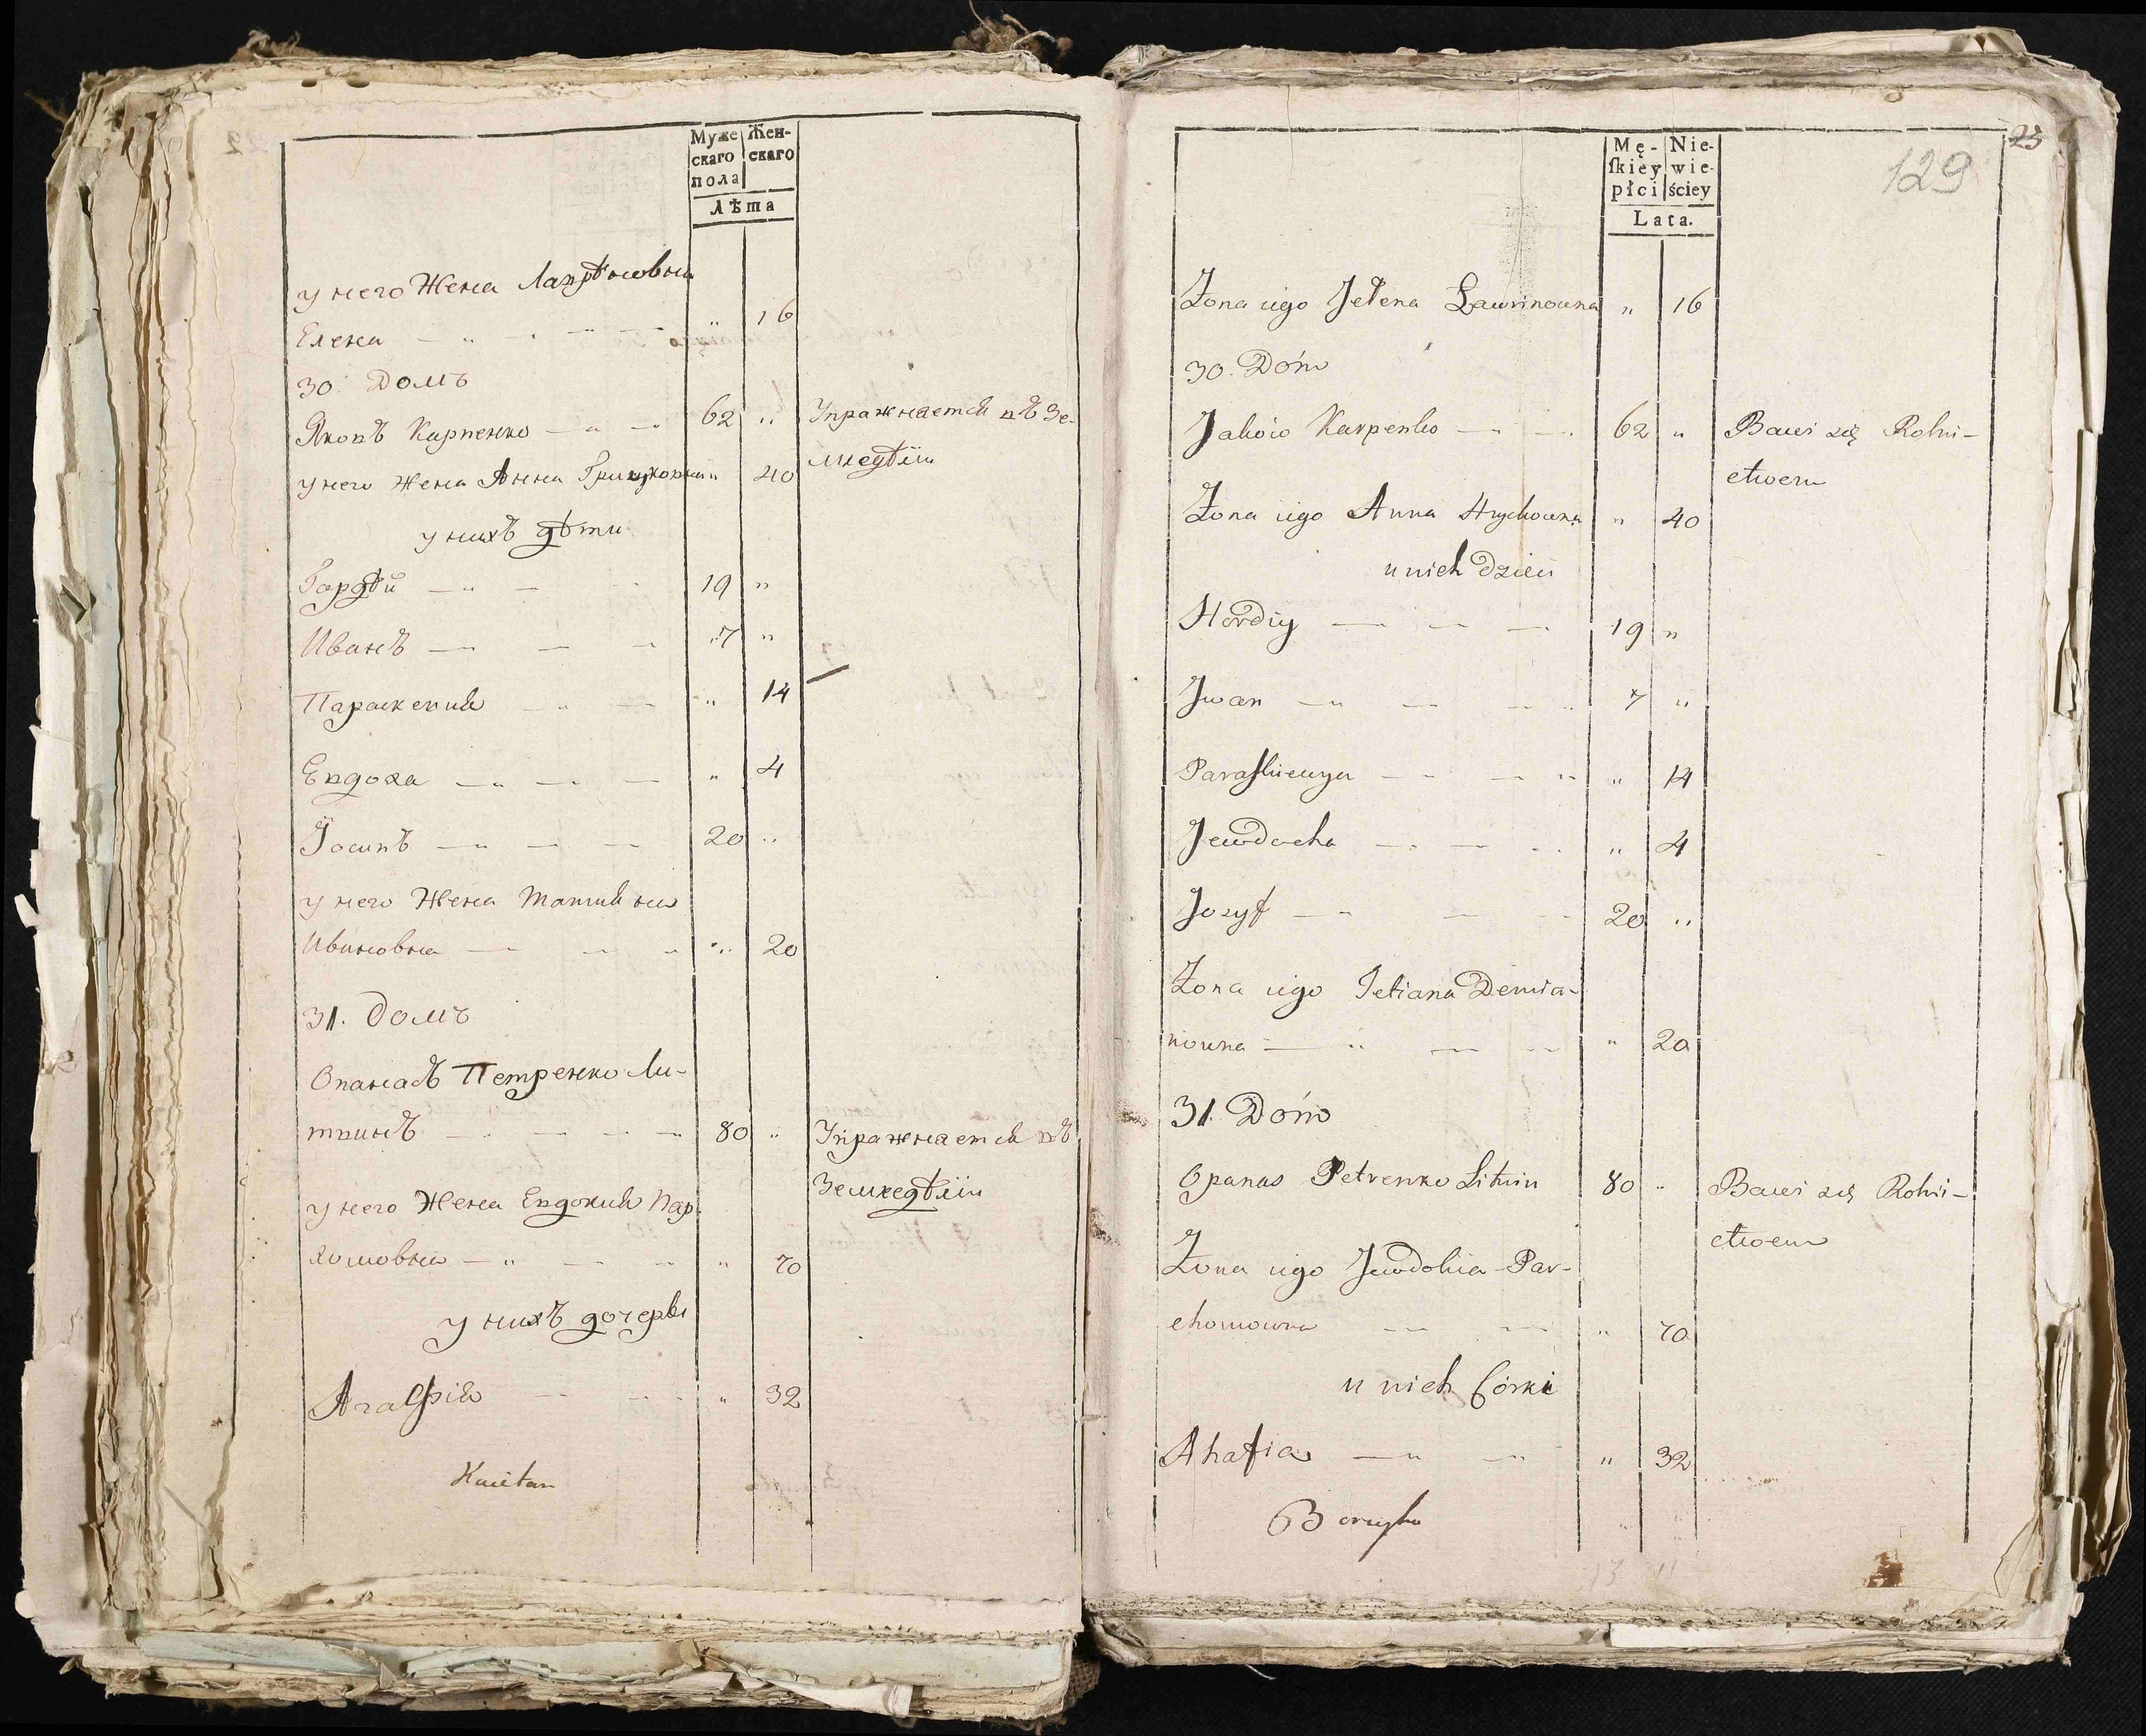 Муже
скаго
пола
Жен-
скаго
Лѣта
у него Жена Лаврѣновна
Елена — „ — „ 16
30. Домъ
Яковъ Карпенко — „ — 62 „ Упражняется въ Зе-
у него жена Анна Грицковна „ 40 мледѣлiи
у нихъ дѣти
Гордѣй — „ — 19 „
Иванъ — — — „7 „
Параскевия — „ — „ 14
Евдоха — „ — — „ 4
Iосипъ — „ — — 20 „
у него Жена Татияна
Ивановна — — „ „ 20
31. Домъ
Опанасъ Петренко Ли-
твинъ — — — — 80 „ Упражняется въ
Земледѣлiи
у него Жена Евдокия Пар-
хомовна — „ — — „ 70
у нихъ дочеры
Агафия — — „ 32
Kaietan
23
129
Mę-
ſkiey
płci
Nie-
wie-
ściey
Lata.
Żona iego Jełena Ławrinowna „ 16
30. Dóm
Jakow Karpenko — — 62 „ Bawi się Rolni-
ctwem
Żona iego Anna Hryckowna „ 40
u nich dzieci
Hordiy — — — 19 „
Jwan — „ — — 7 „
Paraſkiewya — — — „ 14
Jewdocha — — — „ 4
Jozyf — „ — — 20 „
Żona iego Tetiana Demia-
nowna — „ — — „ 20
31. Dóm
Opanas Petrenko Litwin 80 „ Bawi się Rolni-
ctwem
Żona iego Jewdokia Par-
chomowna — — „ 70
u nich Córki
Ahafia — „ — „ 32
Boreyko